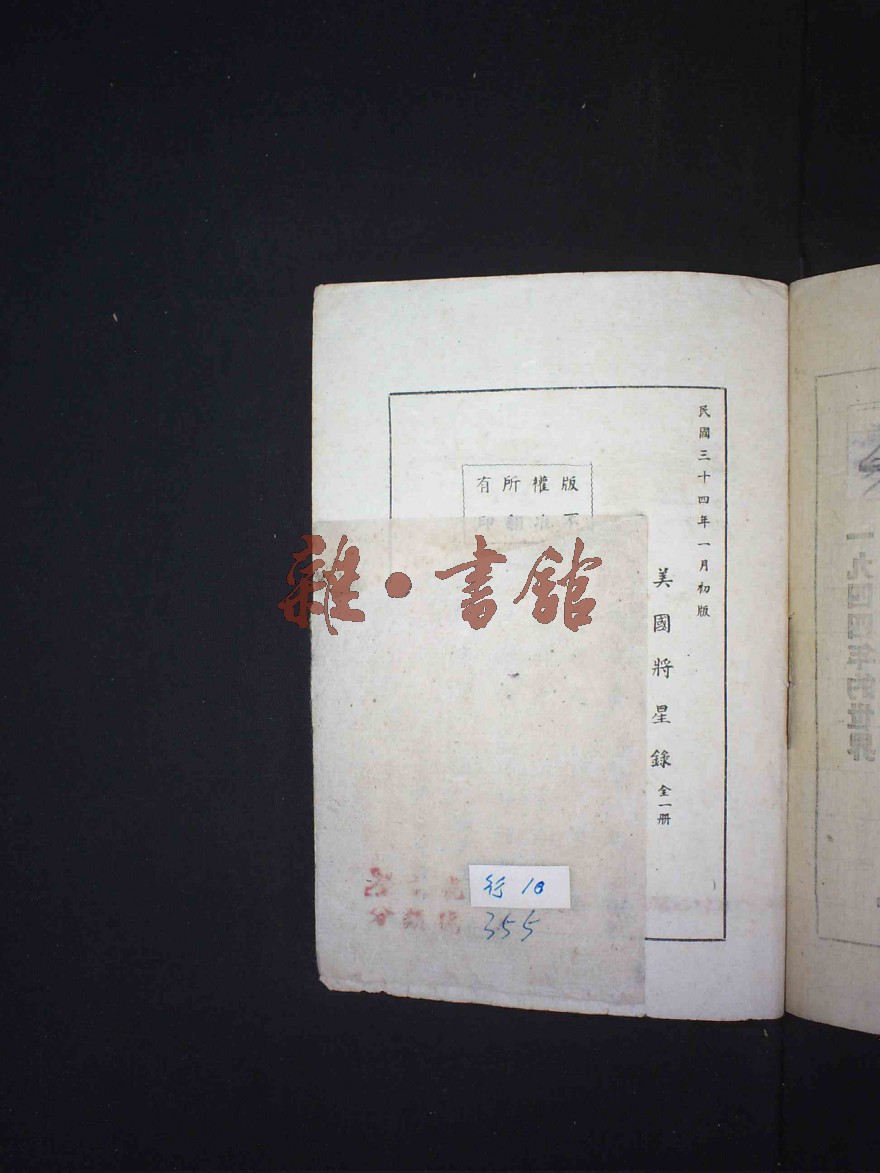 民國三十四年一月初版
美國將星錄 全一册
版權所有
不准翻印
雜·書館
行 18
355
一九四四年的世界